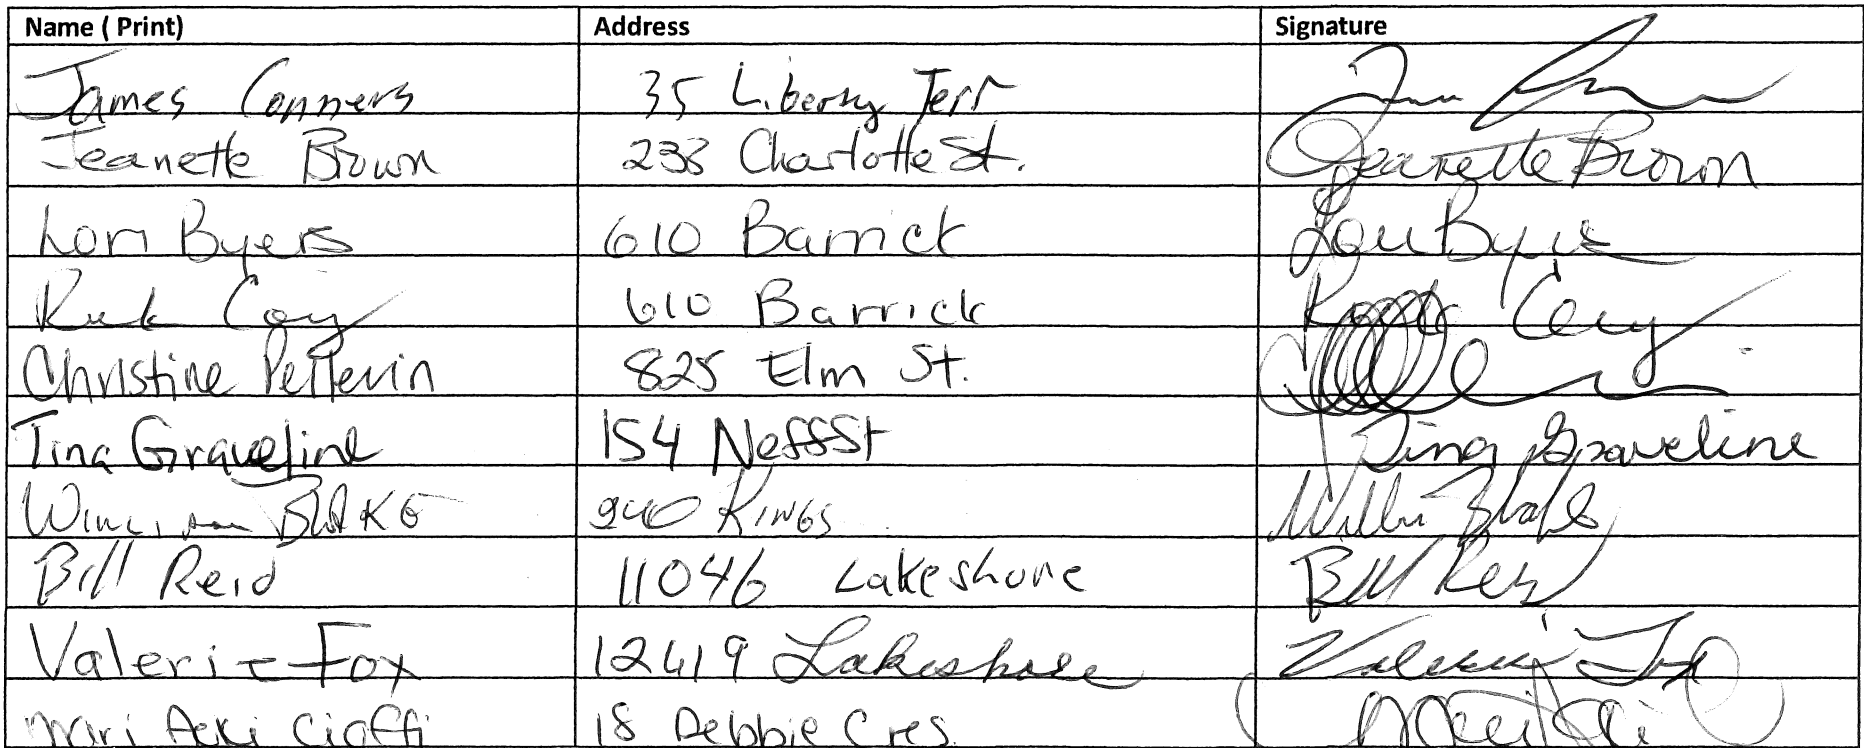 Name ( Print) Address Signature
James Conners 35 Liberty Terr
Jeanette Brown 238 Charlotte St. Jeanette Brown
Lori Byers 610 Barrick Lori Byers
Rick Coy 610 Barrick
Christine Pellerin 825 Elm St.
Tina Graveline 154 Neff St Tina Graveline
William BLAKE 940 KINGS
Bill Reid 11046 Lakeshore Bill Reid
Valerie Fox 12419 Lakeshore Valerie Fox
Cioffi 18 Debbie Cres.